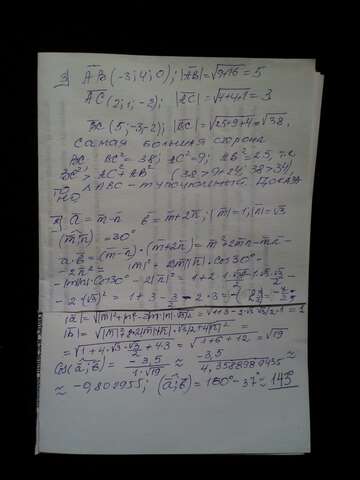 3) AB (-3; 4; 0); |AB| = √9+16 = 5
AC (2; 1; -2); |AC| = √4+4+1 = 3
BC (5; -3; -2); |BC| = √25+9+4 = √38,
самая большая сторона
BC BC² = 38; AC² = 9; AB² = 25, т.к.
BC² > AC² + AB² (38 > 9+25; 38 > 34,
то △ABC - тупоугольный. Доказа
но
a = m-n b = m+2n; |m| = 1; |n| = √3
(m^n) = 30°
a·b = (m-n)·(m+2n) = m² + 2mn - mn -
-2n² = |m|² + 2|m||n|·cos30° -
-|m||n|cos30° - 2|n|² = 1+2·1·√3·√3/2 -
|b| = √|m|²+4|m||n|·√3/2+4|n|² =
= √1+4·√3·√3/2+4·3 = √1+6+12 = √19
cos(a^;b) = -3,5/1·√19 ≈ -3,5/4,3588989435 ≈
≈ -0,802955; (a^;b) = 180° - 37° ≈ 143°